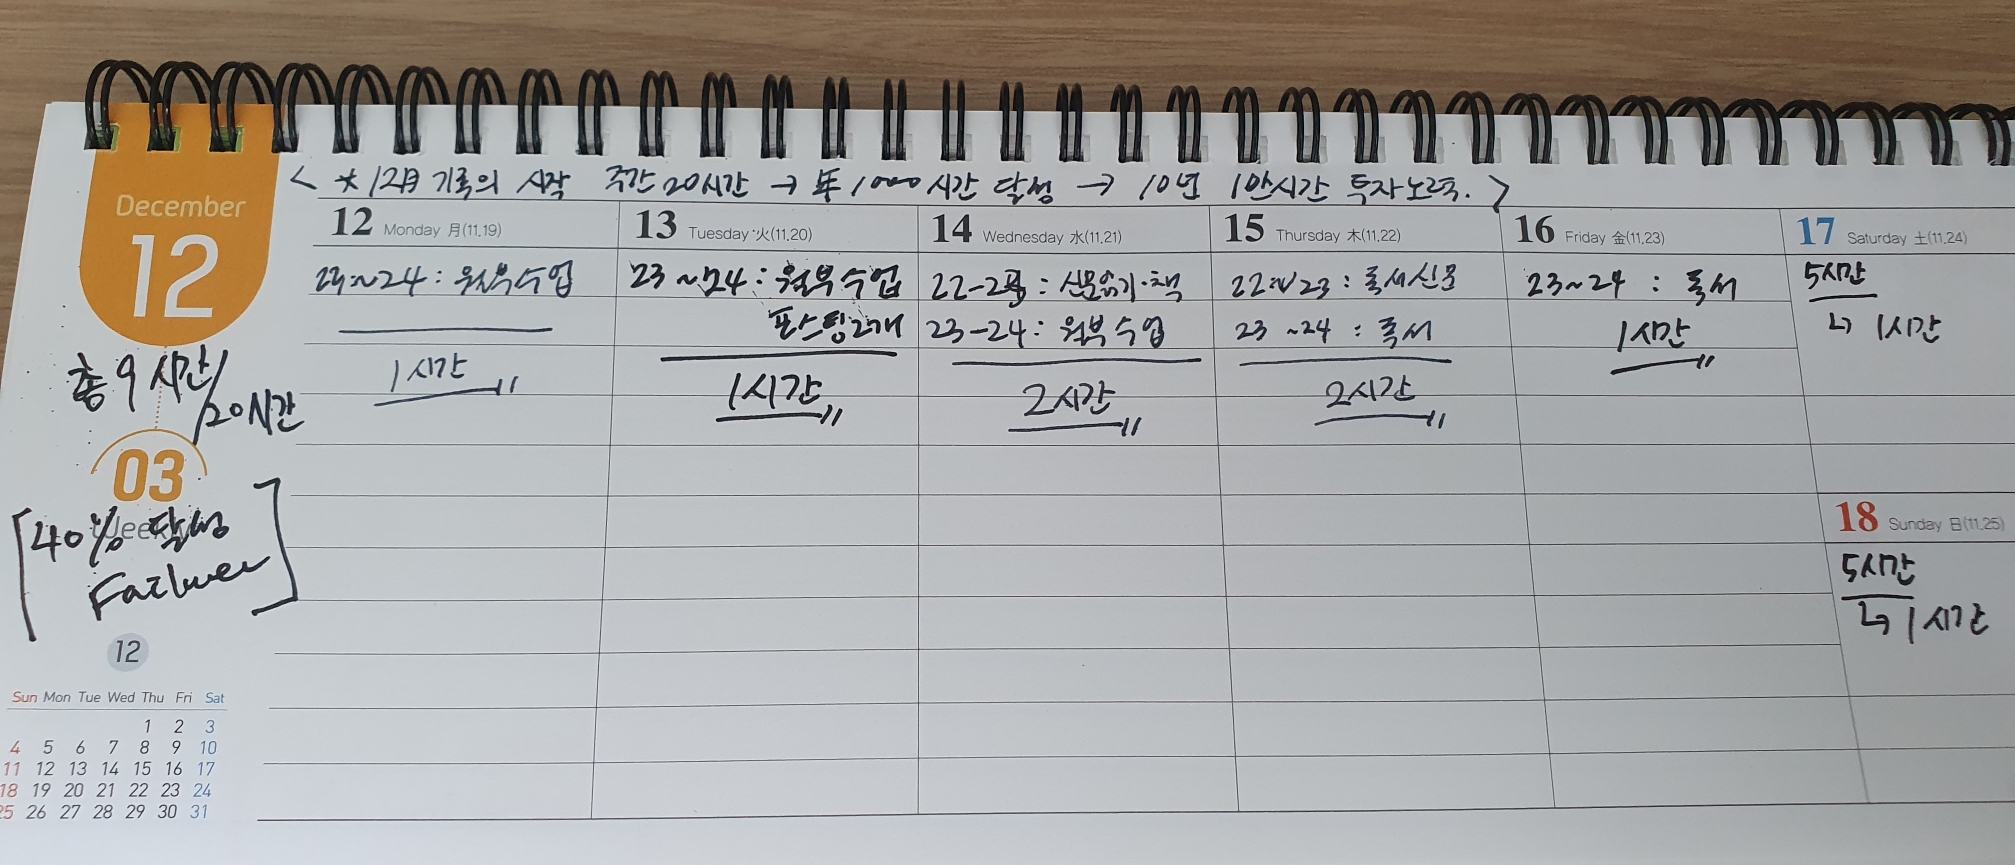 < * 12月 기록의 시작 주간 20시간 → 年 1000시간 달성 → 10년 1만시간 투자노력. >
December
12
총 9시간/20시간
03
Week
[40% 달성
Failuer]
12 Monday 月(11.19)
~24 : 월부수업
1시간
13 Tuesday 火(11.20)
23~24 : 월부수업
포스팅2개
1시간
14 Wednesday 水(11.21)
22-23 : 신문읽기·책
23-24 : 월부수업
2시간
15 Thursday 木(11.22)
22~23 : 독서신문
23~24 : 독서
2시간
16 Friday 金(11.23)
23~24 : 독서
1시간
17 Saturday 土(11.24)
5시간
↳ 1시간
18 Sunday 日(11.25)
5시간
↳ 1시간
12
Sun Mon Tue Wed Thu Fri Sat
1 2 3
4 5 6 7 8 9 10
11 12 13 14 15 16 17
18 19 20 21 22 23 24
25 26 27 28 29 30 31